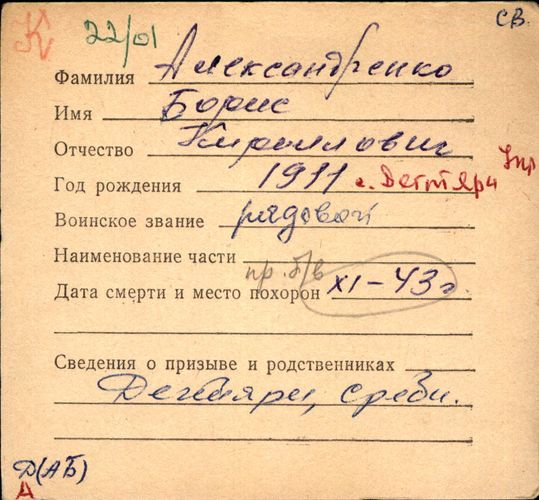 К 22/01 СВ.
Фамилия Александренко
Имя Борис
Отчество Кириллович
Год рождения 1911 с. Дегтяри Укр
Воинское звание рядовой
Наименование части
пр. б/в
Дата смерти и место похорон XI-43 г.
Сведения о призыве и родственниках
Дегтяри, Среб.
Д(АБ)
А